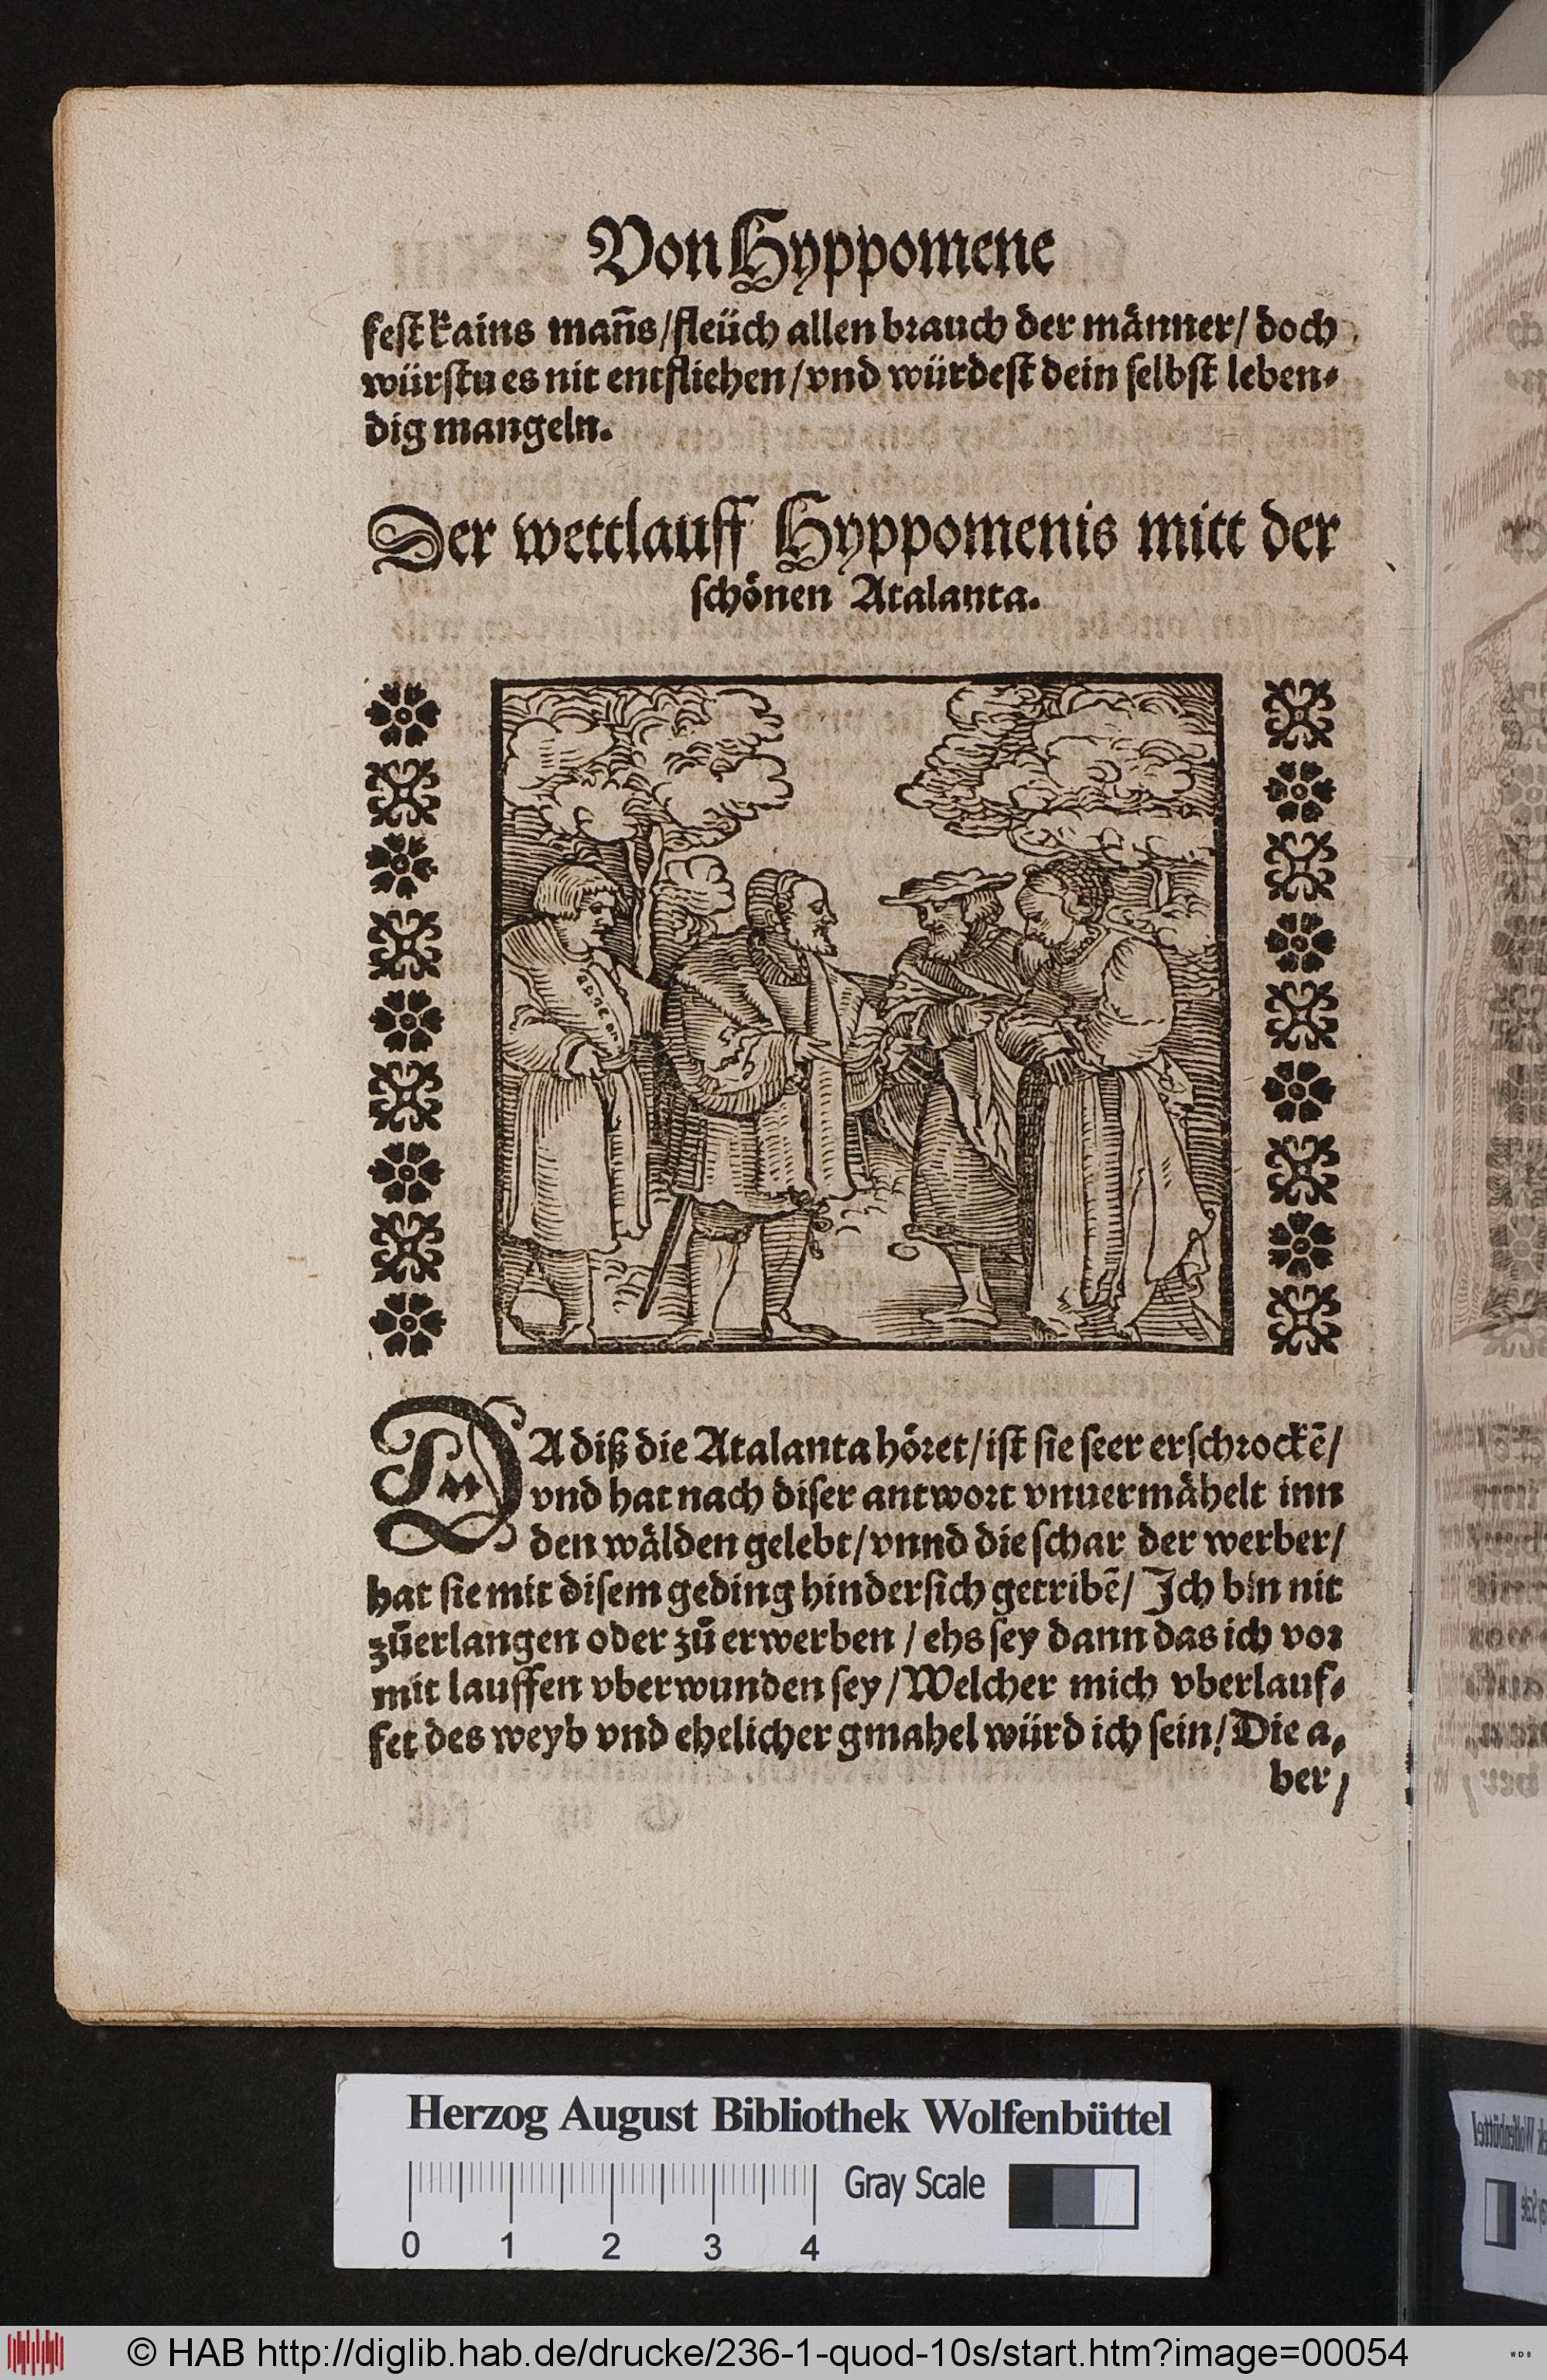 Von Hyppomene
fest kains mañs/fleüch allen brauch der männer/ doch
würstu es nit entfliehen/vnd würdest dein selbst leben⸗
dig mangeln.
Der wettlauff Hyppomenis mitt der
schönen Atalanta.
DA diß die Atalanta höret/ist sie seer erschrockẽ/
vnd hat nach diser antwort vnuermähelt inn
den wälden gelebt/vnnd die schar der werber/
hat sie mit disem geding hindersich getribẽ/ Ich bin nit
zůerlangen oder zů erwerben / ehs sey dann das ich vor
mit lauffen vberwunden sey/Welcher mich vberlauf⸗
fet des weyb vnd ehelicher gmahel würd ich sein/Die a⸗
ber/
Herzog August Bibliothek Wolfenbüttel
Gray Scale
0 1 2 3 4
© HAB http://diglib.hab.de/drucke/236-1-quod-10s/start.htm?image=00054